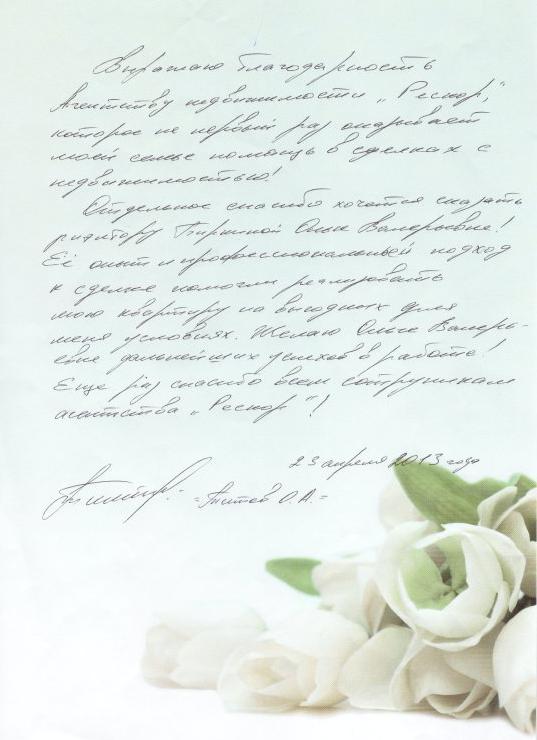 Выражаю благодарность
Агентству недвижимости „Респор",
которое не первый раз оказывает
моей семье помощь в сделках с
недвижимостью!
Отдельное спасибо хочется сказать
риэлтору Ольге Валерьевне!
Её опыт и профессиональный подход
к сделке помогли реализовать
мою квартиру на выгодных для
меня условиях. Желаю Ольге Валерь-
евне дальнейших успехов в работе!
Еще раз спасибо всем сотрудникам
агентства „Респор"!
23 апреля 2013 года
Титов О.А.